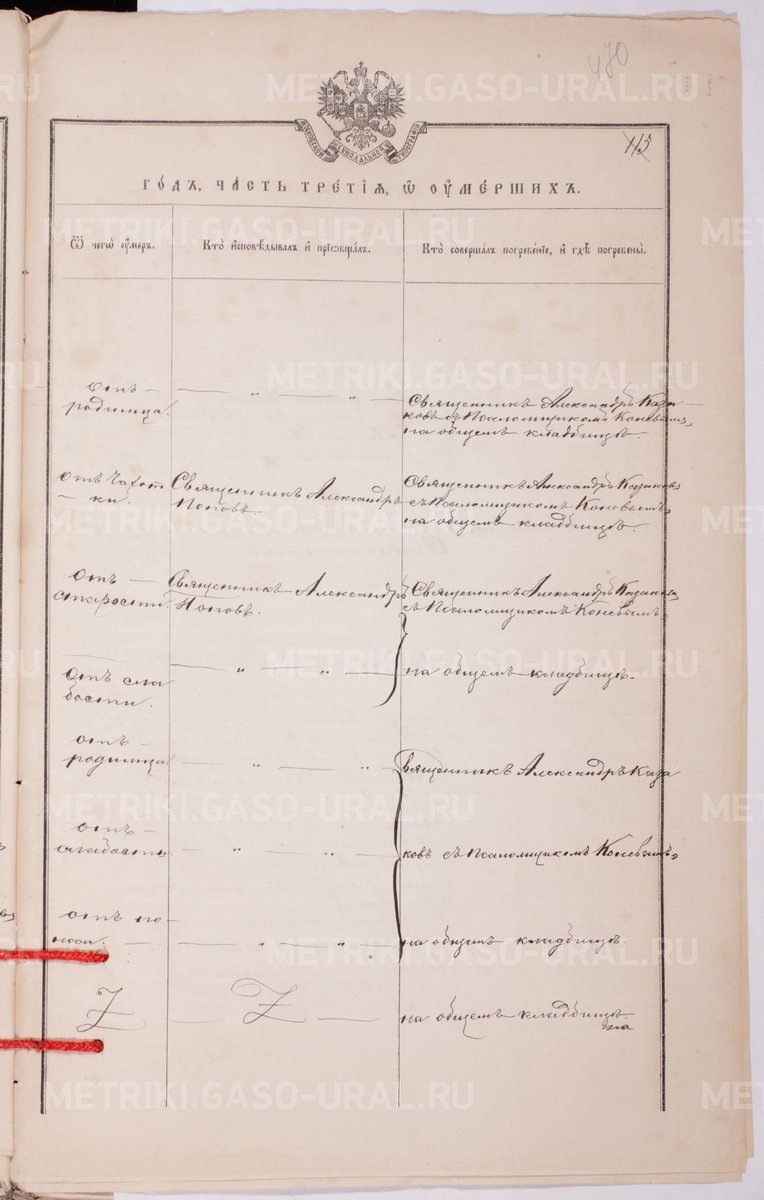 470
115
МОСКОВСКОЙ СѴНОДАЛЬНОЙ ТИПОГРАФІИ
ГО́ДЪ, ЧА́СТЬ ТРЕ́ТІѦ, Ѡ ОУМЕ́РШИХЪ.
Ѿ чегѡ̀ оу́меръ.
Кто̀ и҆сповѣ́дывалъ и҆ прїѡбща́лъ.
Кто̀ соверша́лъ погребе́нїе, и҆ гдѣ̀ погребены̀.
Отъ —
родимца.
— „ — „ —
Священникъ Александръ Каза-
ковъ съ Псаломщикомъ Коневымъ,
на общемъ кладбищѣ.
отъ Чахот
— ки.
Священникъ Александръ
Поповъ.
Священникъ Александръ Казаковъ
съ Псаломщикомъ Коневымъ,
на общемъ кладбищѣ.
Отъ —
старости.
Священникъ Александръ
Поповъ.
Священникъ Александръ Казаковъ
съ Псаломщикомъ Коневымъ,
Отъ сла
бости.
— „ — „ —
на общемъ кладбищѣ.
отъ —
родимца
— „ — „ —
Священникъ Александръ Каза
отъ —
слабости
— „ — „ —
ковъ съ Псаломщикомъ Коневымъ,
отъ по-
носа.
— „ — „ —
на общемъ кладбищѣ.
Z — Z —
на общемъ кладбищѣ.
на
METRIKI.GASO-URAL.RU